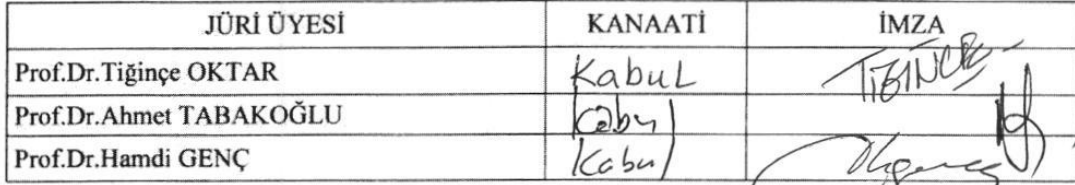 JÜRİ ÜYESİ KANAATİ İMZA
Prof.Dr.Tiğinçe OKTAR Kabul TİĞİNÇE
Prof.Dr.Ahmet TABAKOĞLU Kabul
Prof.Dr.Hamdi GENÇ Kabul